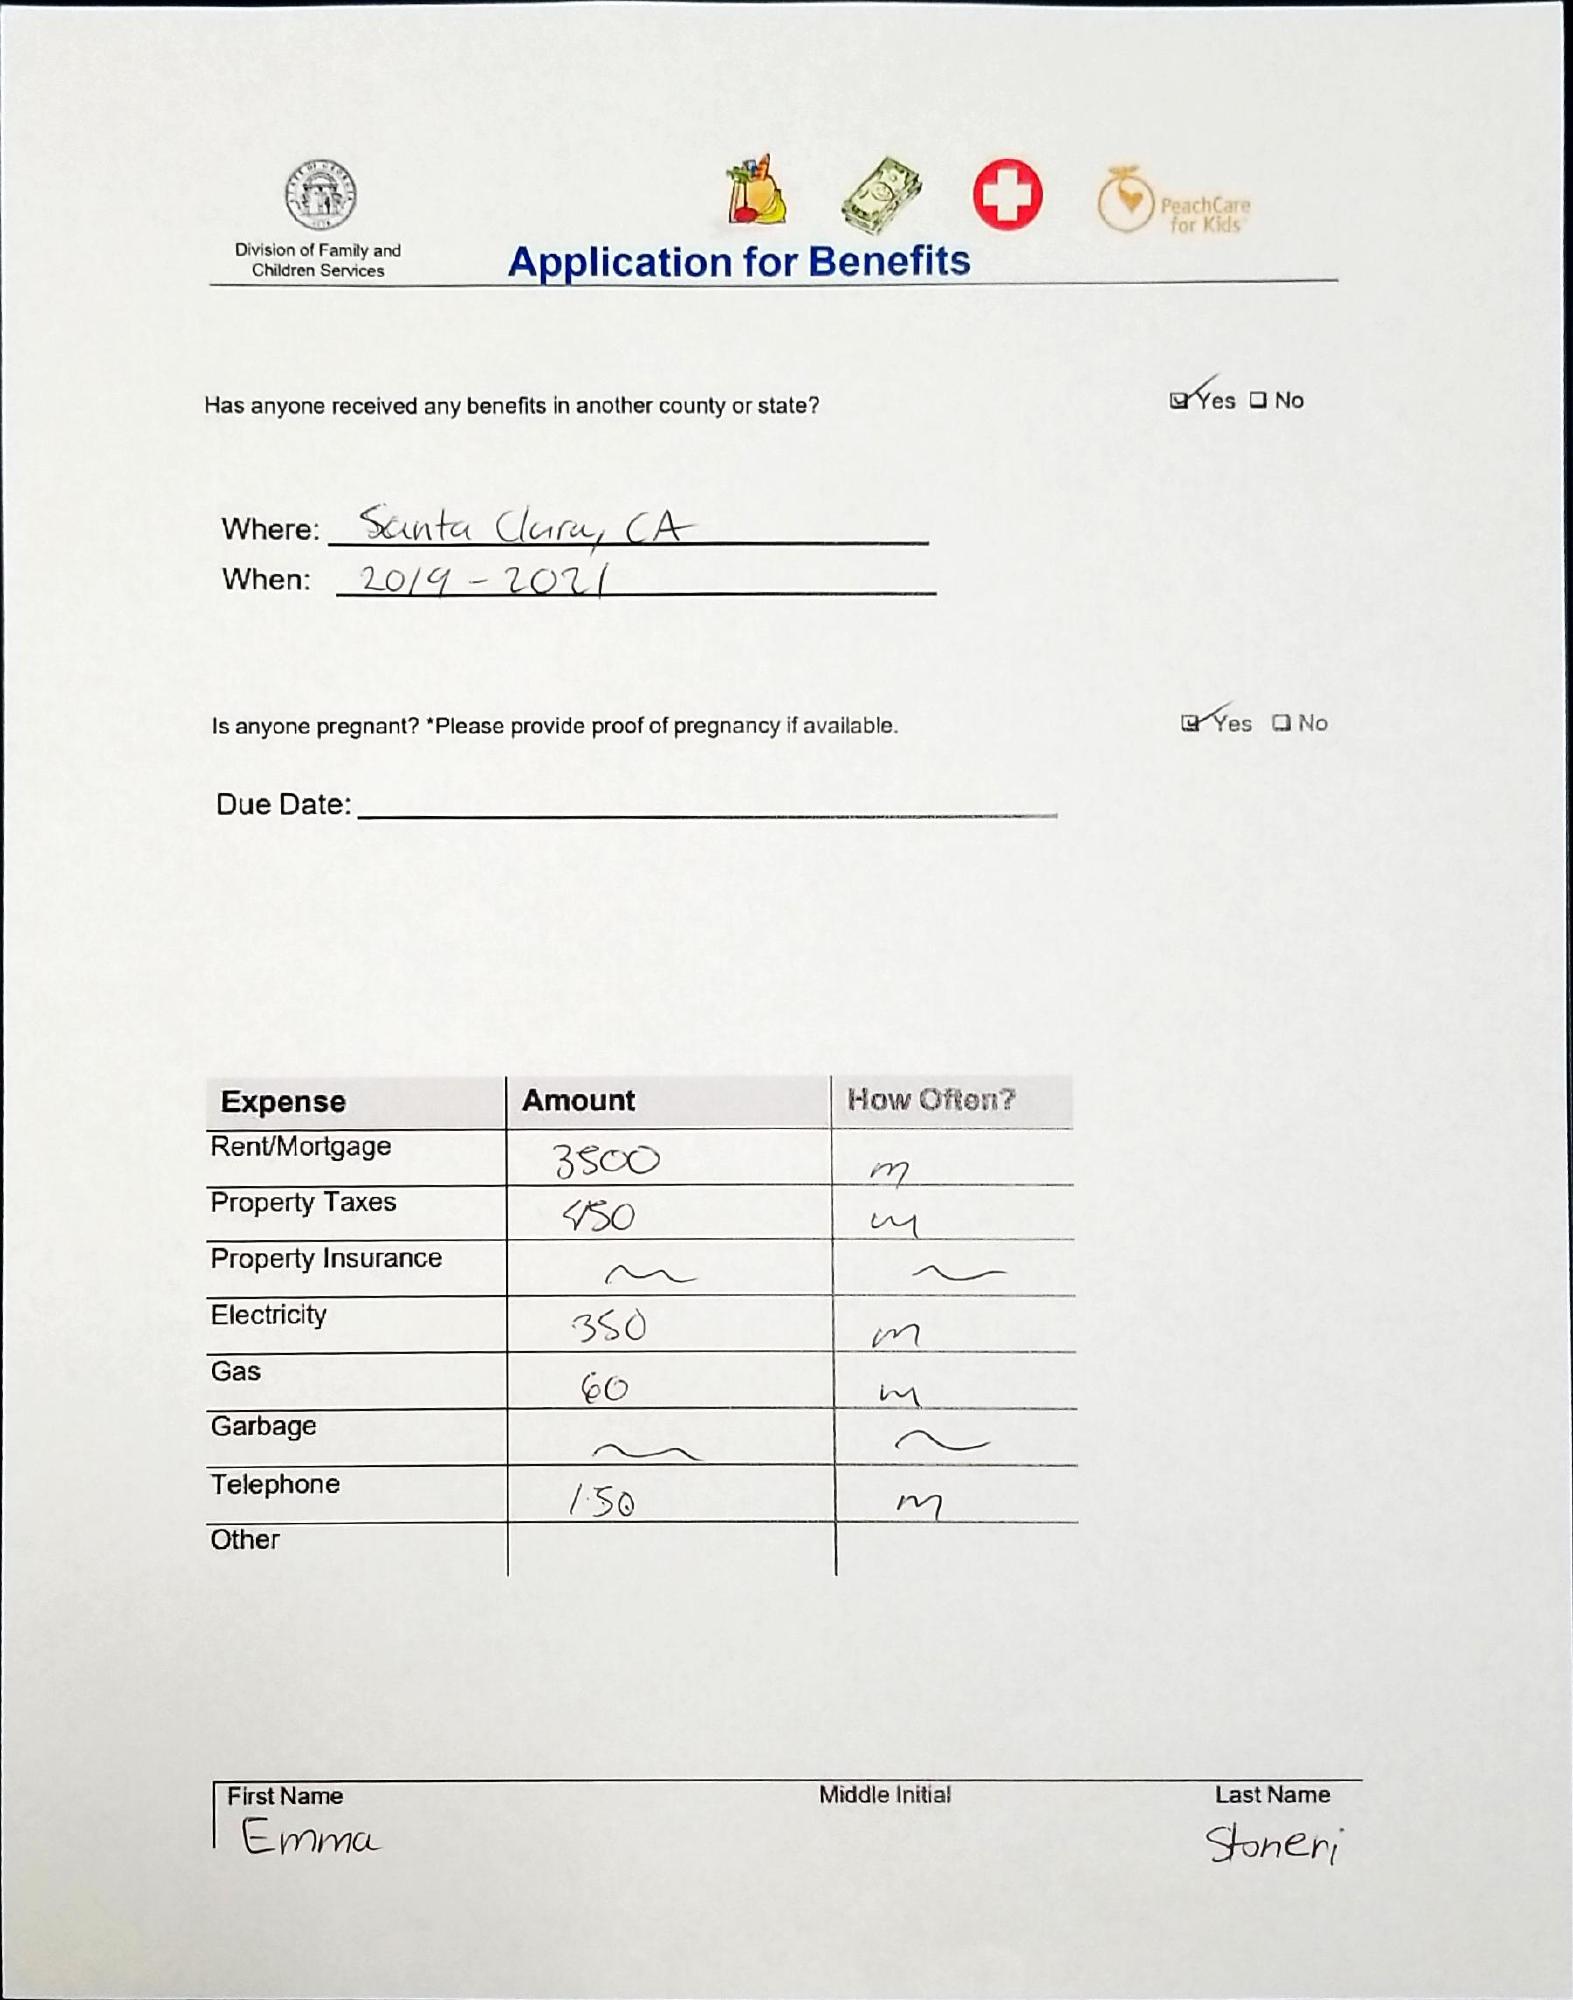 STATE OF GEORGIA
PeachCare
for Kids
Division of Family and
Children Services
Application for Benefits
Has anyone received any benefits in another county or state? Yes No
Where: Santa Clara, CA
When: 2019 - 2021
Is anyone pregnant? *Please provide proof of pregnancy if available. Yes No
Due Date:
Expense Amount How Often?
Rent/Mortgage 3500 m
Property Taxes 450 m
Property Insurance
Electricity 350 m
Gas 60 m
Garbage
Telephone 150 m
Other
First Name Middle Initial Last Name
Emma Stoneri